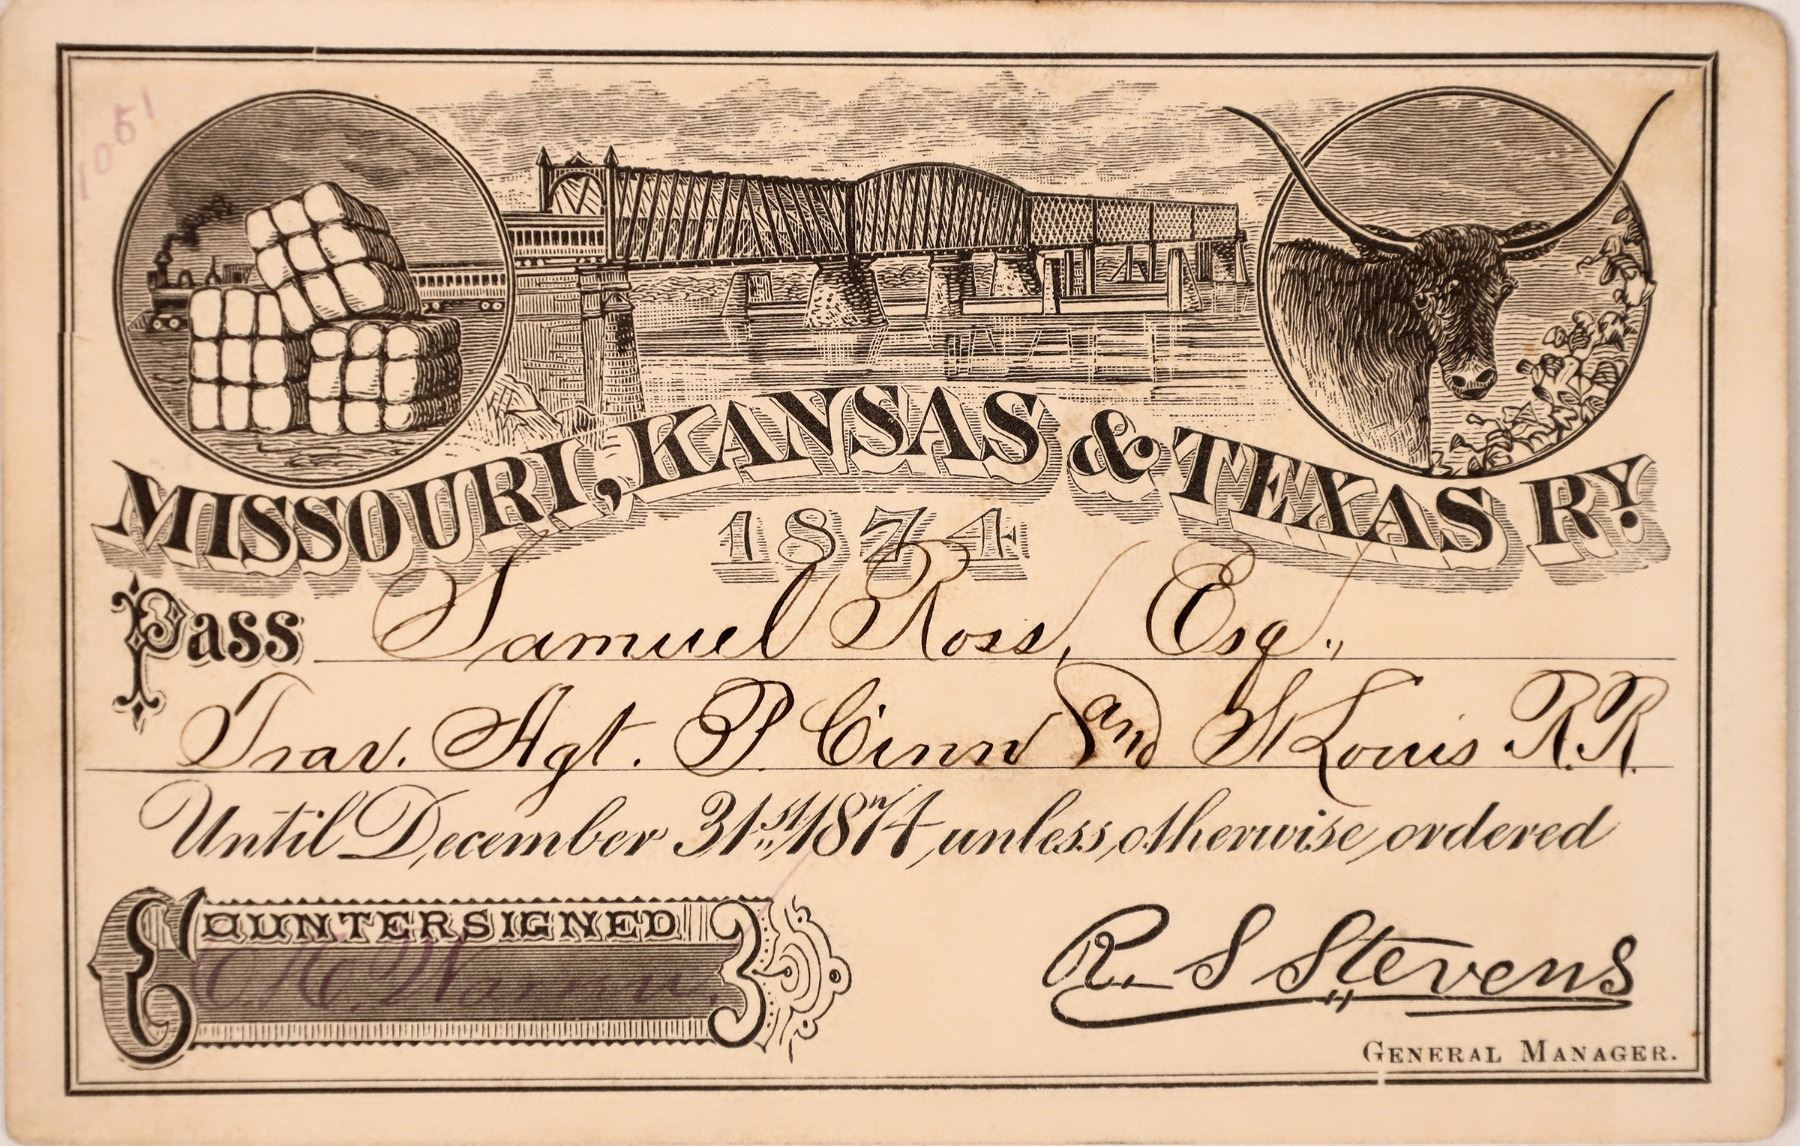 1051
MISSOURI, KANSAS & TEXAS RY.
1874
Pass Samuel Ross, Esq.,
Trav. Agt. P. Cinn and St Louis R.R.
Until December 31st 1874, unless otherwise ordered
COUNTERSIGNED
R. S Stevens
GENERAL MANAGER.